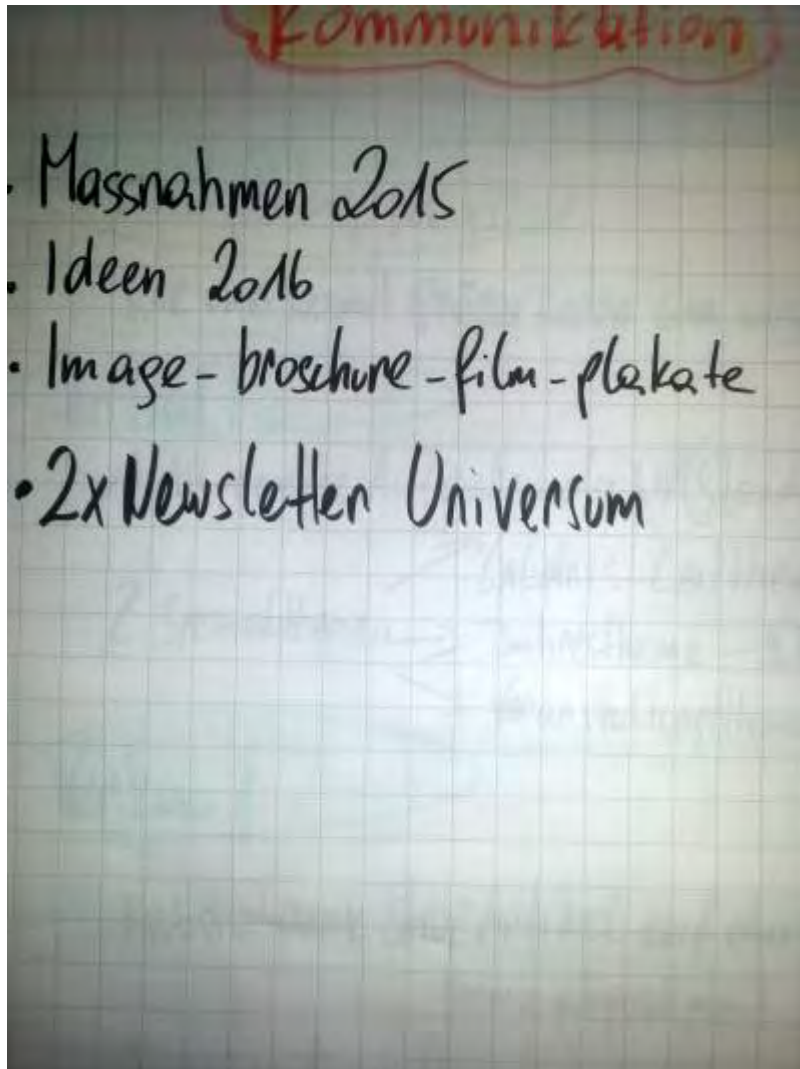 Kommunikation
. Massnahmen 2015
. Ideen 2016
. Image-broschure-film-plakate
• 2x Newsletter Universum